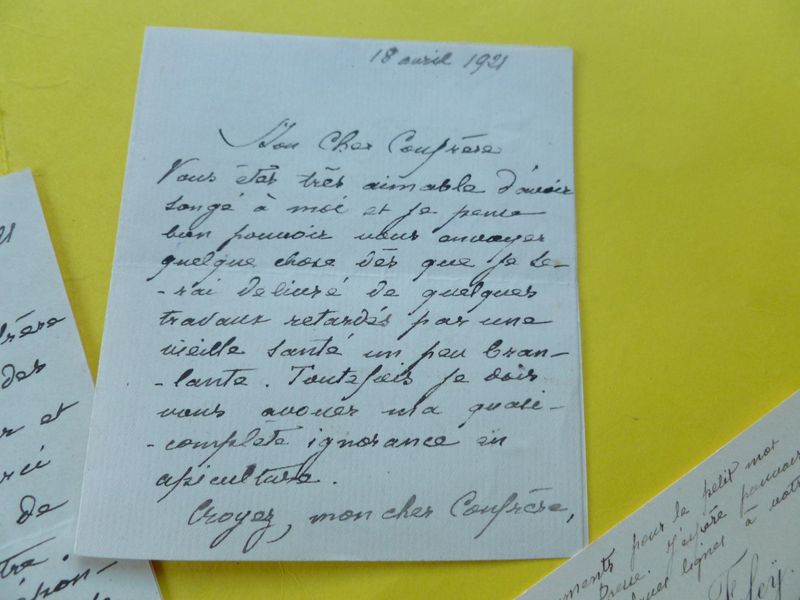 18 avril 1921
Mon Cher Confrère
Vous êtes très aimable d'avoir
songé à moi et je pense
bien pouvoir vous envoyer
quelque chose dès que je se-
-rai délivré de quelques
travaux retardés par une
vieille santé un peu bran-
-lante. Toutefois je dois
vous avouer ma quasi-
-complète ignorance en
apiculture.
Croyez, mon cher Confrère,
21
frère
des
r et
de
tre.
épon-
ments pour le petit mot
J'espère pouvoir
lignes à votre